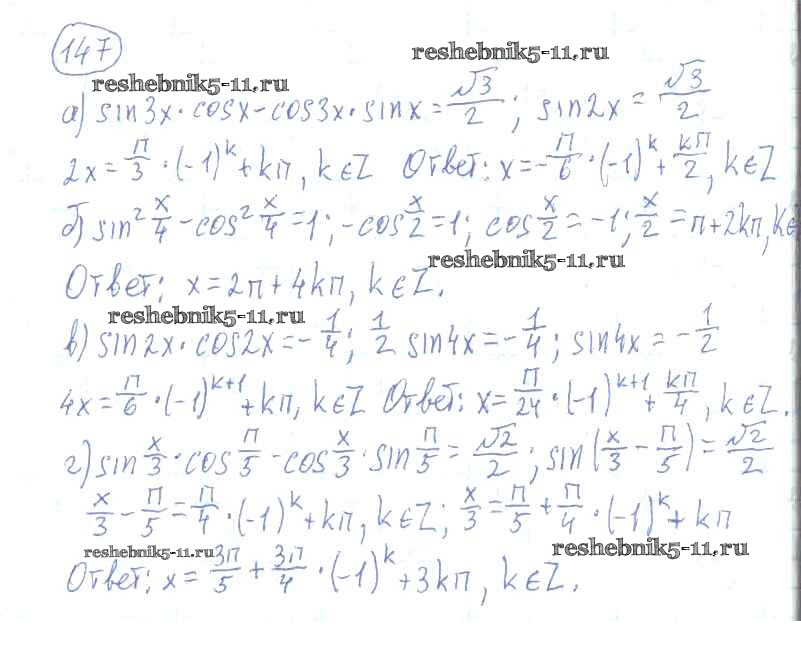 147
reshebnik5-11.ru
reshebnik5-11.ru
а) sin3x·cosx-cos3x·sinx=√3/2; sin2x=√3/2
2x=π/3·(-1)^k+kπ, k∈Z Ответ: x=-π/6·(-1)^k+kπ/2, k∈Z
б) sin²x/4-cos²x/4=1; -cosx/2=1; cosx/2=-1; x/2=π+2kπ, k∈
reshebnik5-11.ru
Ответ: x=2π+4kπ, k∈Z.
reshebnik5-11.ru
в) sin2x·cos2x=-1/4; 1/2 sin4x=-1/4; sin4x=-1/2
4x=π/6·(-1)^(k+1)+kπ, k∈Z Ответ: x=π/24·(-1)^(k+1)+kπ/4, k∈Z.
г) sinx/3·cosπ/5-cosx/3·sinπ/5=√2/2; sin(x/3-π/5)=√2/2
x/3-π/5=π/4·(-1)^k+kπ, k∈Z; x/3=π/5+π/4·(-1)^k+kπ
reshebnik5-11.ru
reshebnik5-11.ru
Ответ: x=3π/5+3π/4·(-1)^k+3kπ, k∈Z.